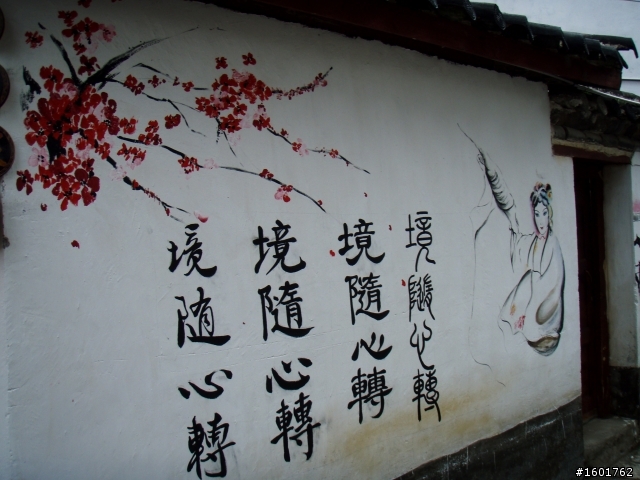 境隨心轉
境隨心轉
境隨心轉
境随心轉
#1601762